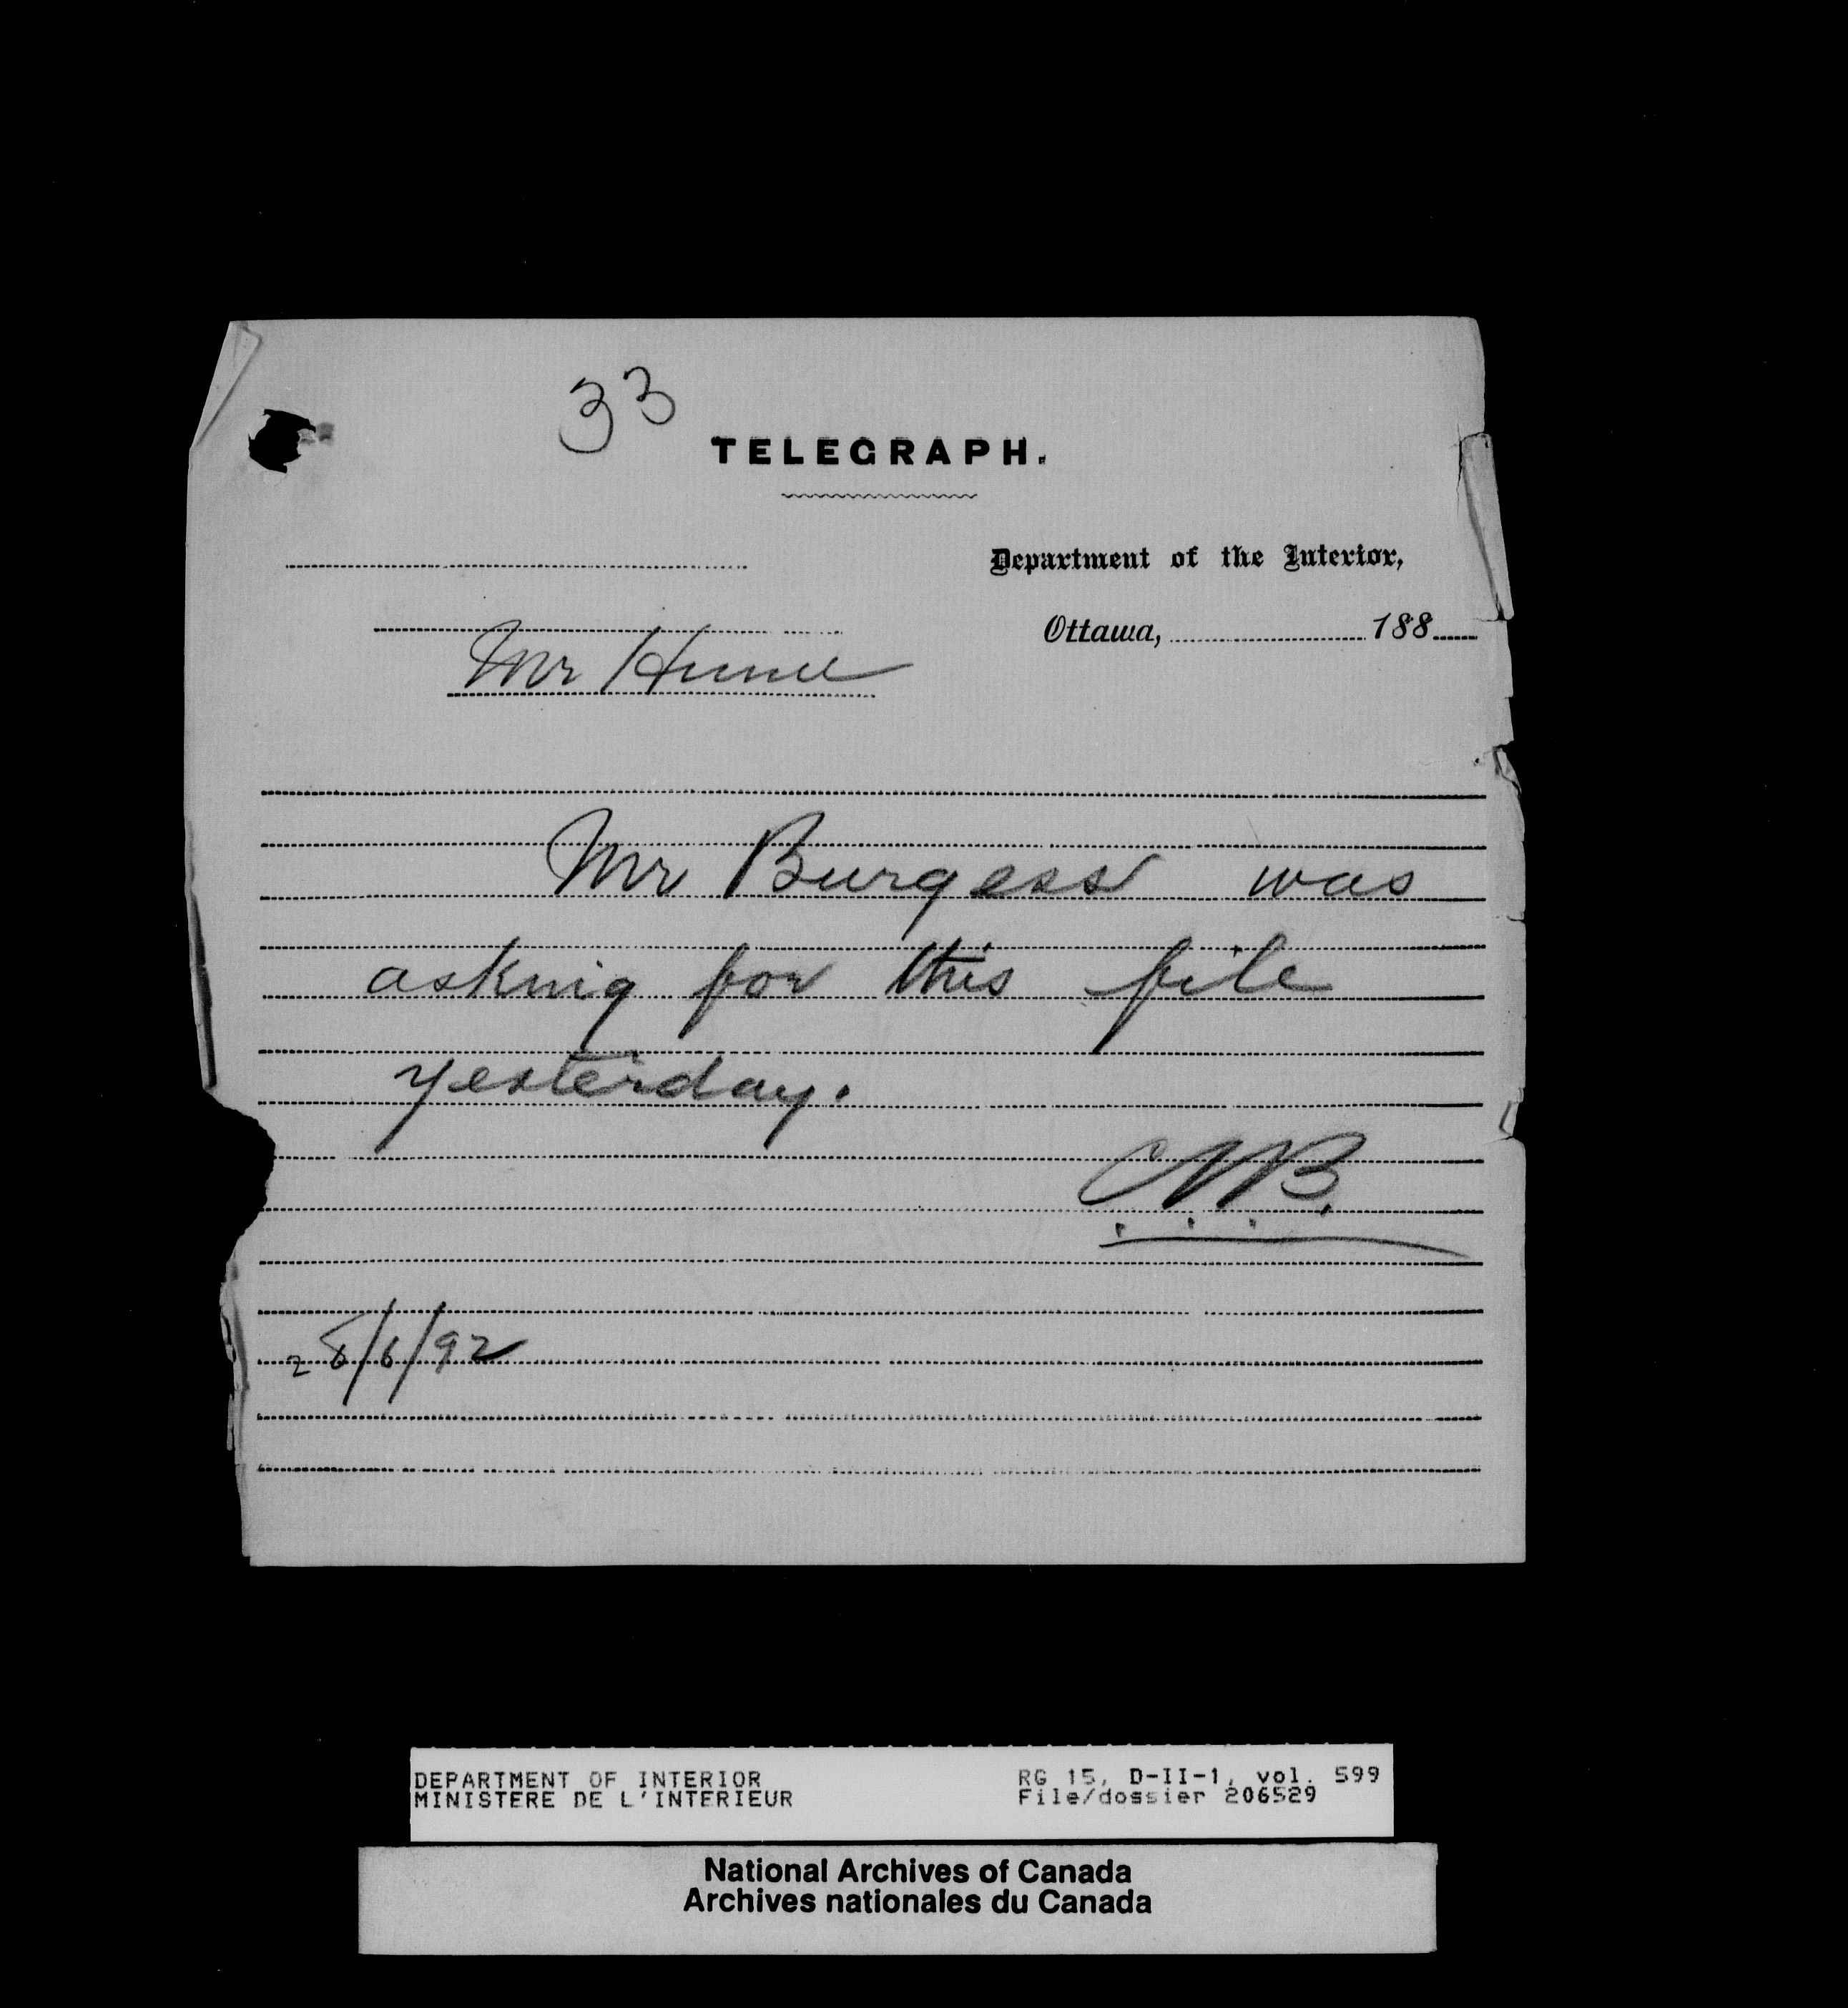 33
TELEGRAPH.
Department of the Interior,
Ottawa, 188
Mr Hume
Mr Burgess was
asking for this file
yesterday.
28/6/92
DEPARTMENT OF INTERIOR
MINISTERE DE L'INTERIEUR
RG 15, D-II-1, vol. 599
File/dossier 206529
National Archives of Canada
Archives nationales du Canada